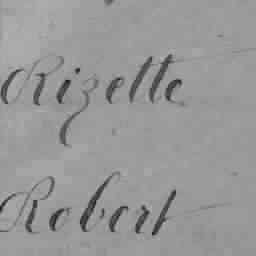 Rizette
Robert